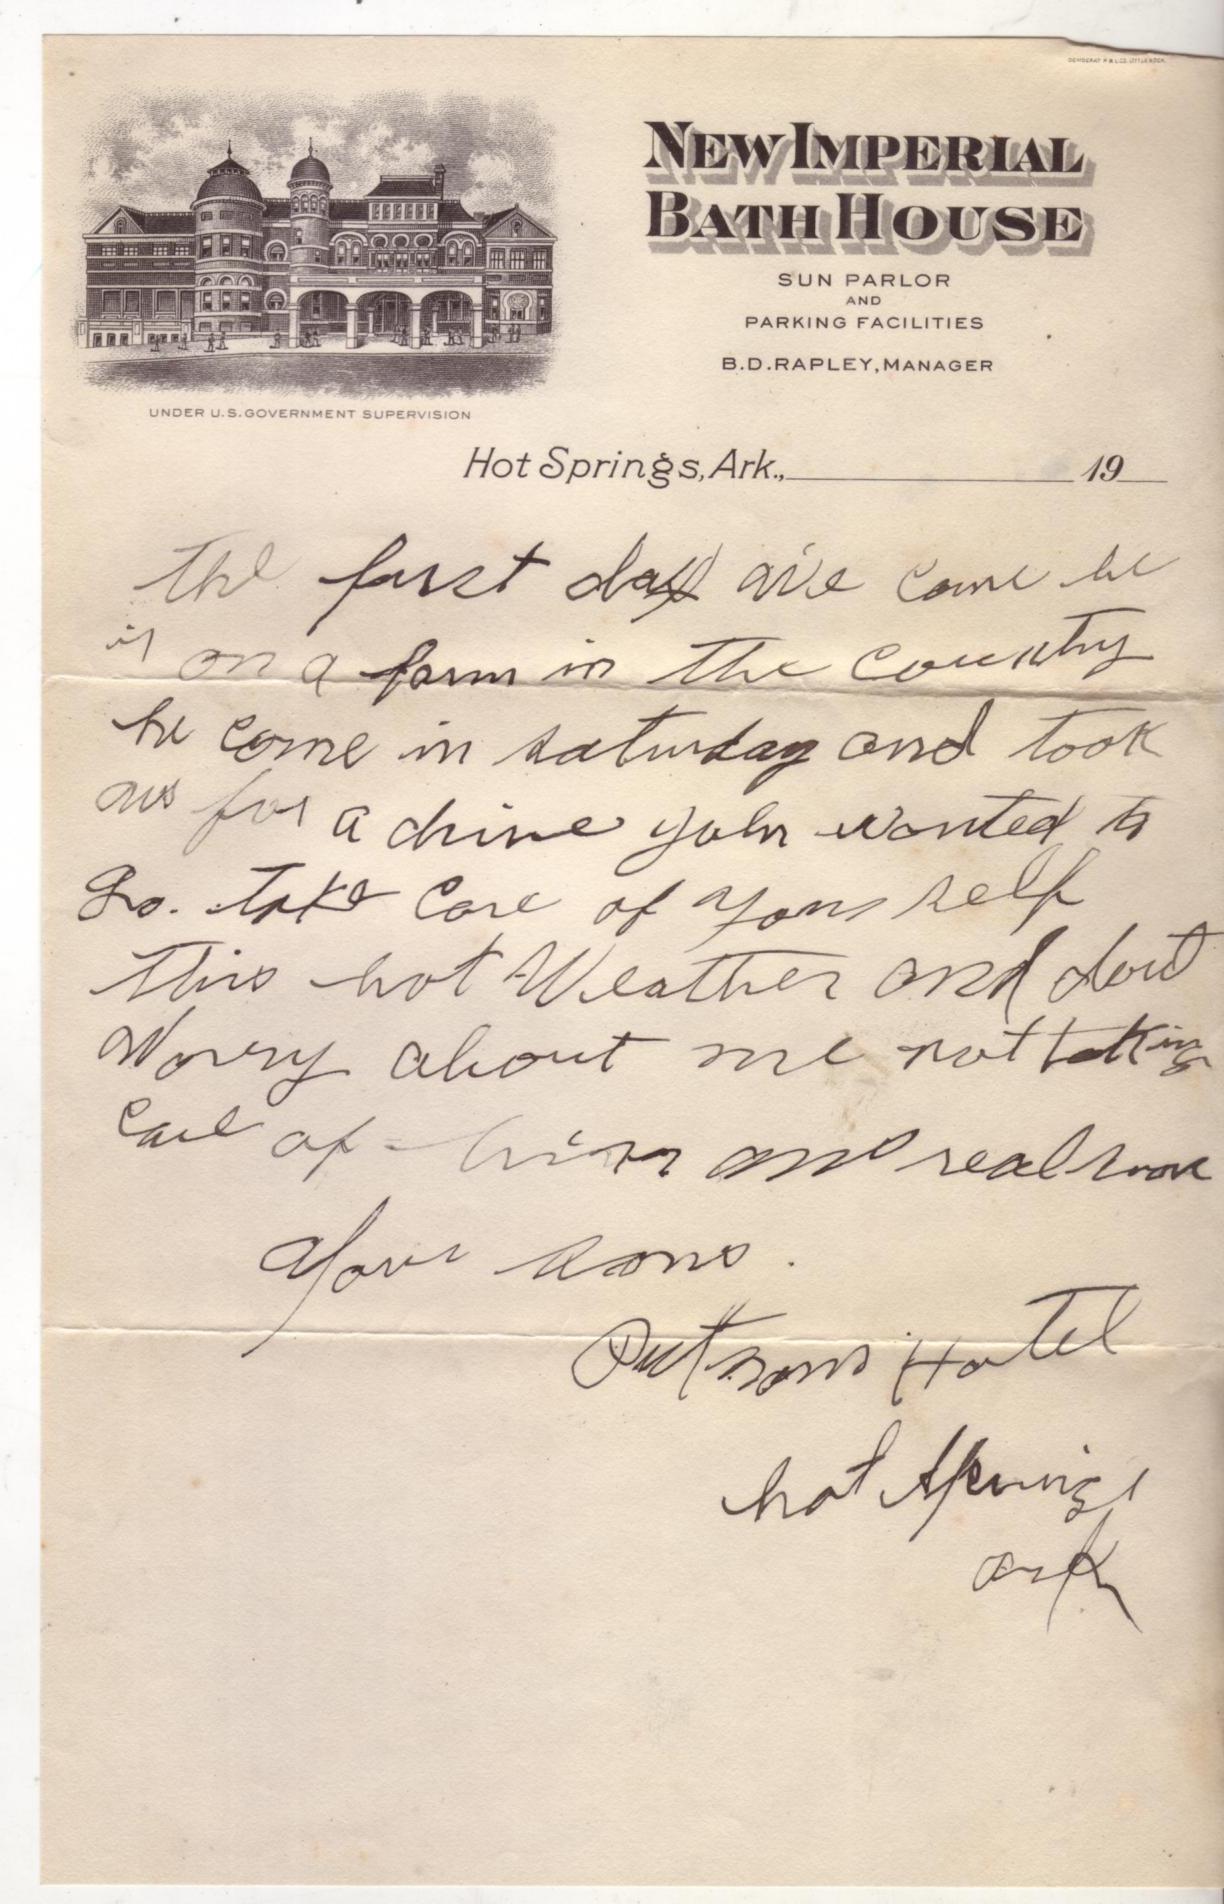 DEMOCRAT P. & L. CO. LITTLE ROCK.
NEW IMPERIAL
BATH HOUSE
SUN PARLOR
AND
PARKING FACILITIES
B.D. RAPLEY, MANAGER
UNDER U.S. GOVERNMENT SUPERVISION
Hot Springs, Ark., 19
The first day we come he
is on a farm in the country
he come in saturday and took
us for a drive John wanted to
go. take care of your self
This hot Weather and dont
Worry about me not taking
care of him and real
your sons.
Hotel
hot Springs
ark